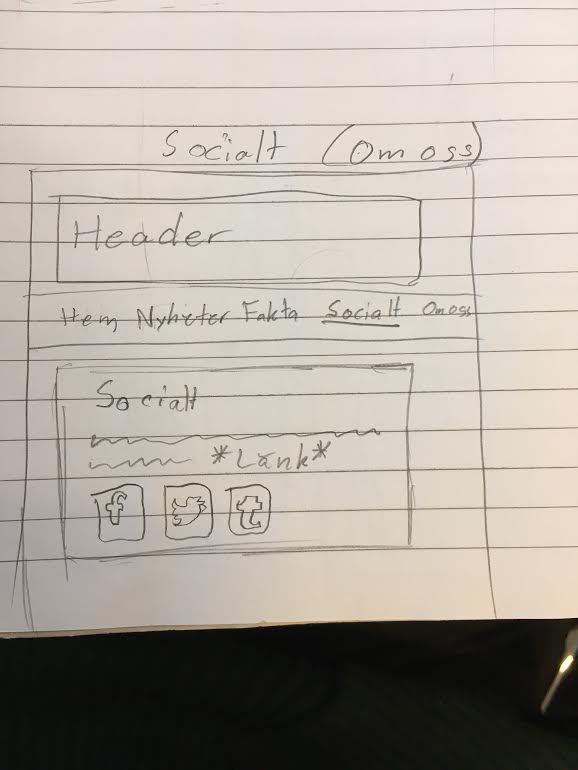 Socialt (Om oss)
Header
Hem Nyheter Fakta Socialt Om oss
Socialt
*Länk*
f t